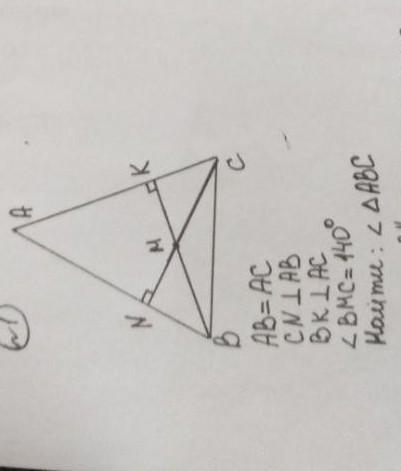 №1
A
N
K
M
B
C
AB=AC
CN⊥AB
BK⊥AC
∠BMC=140°
Найти: ∠ △ABC